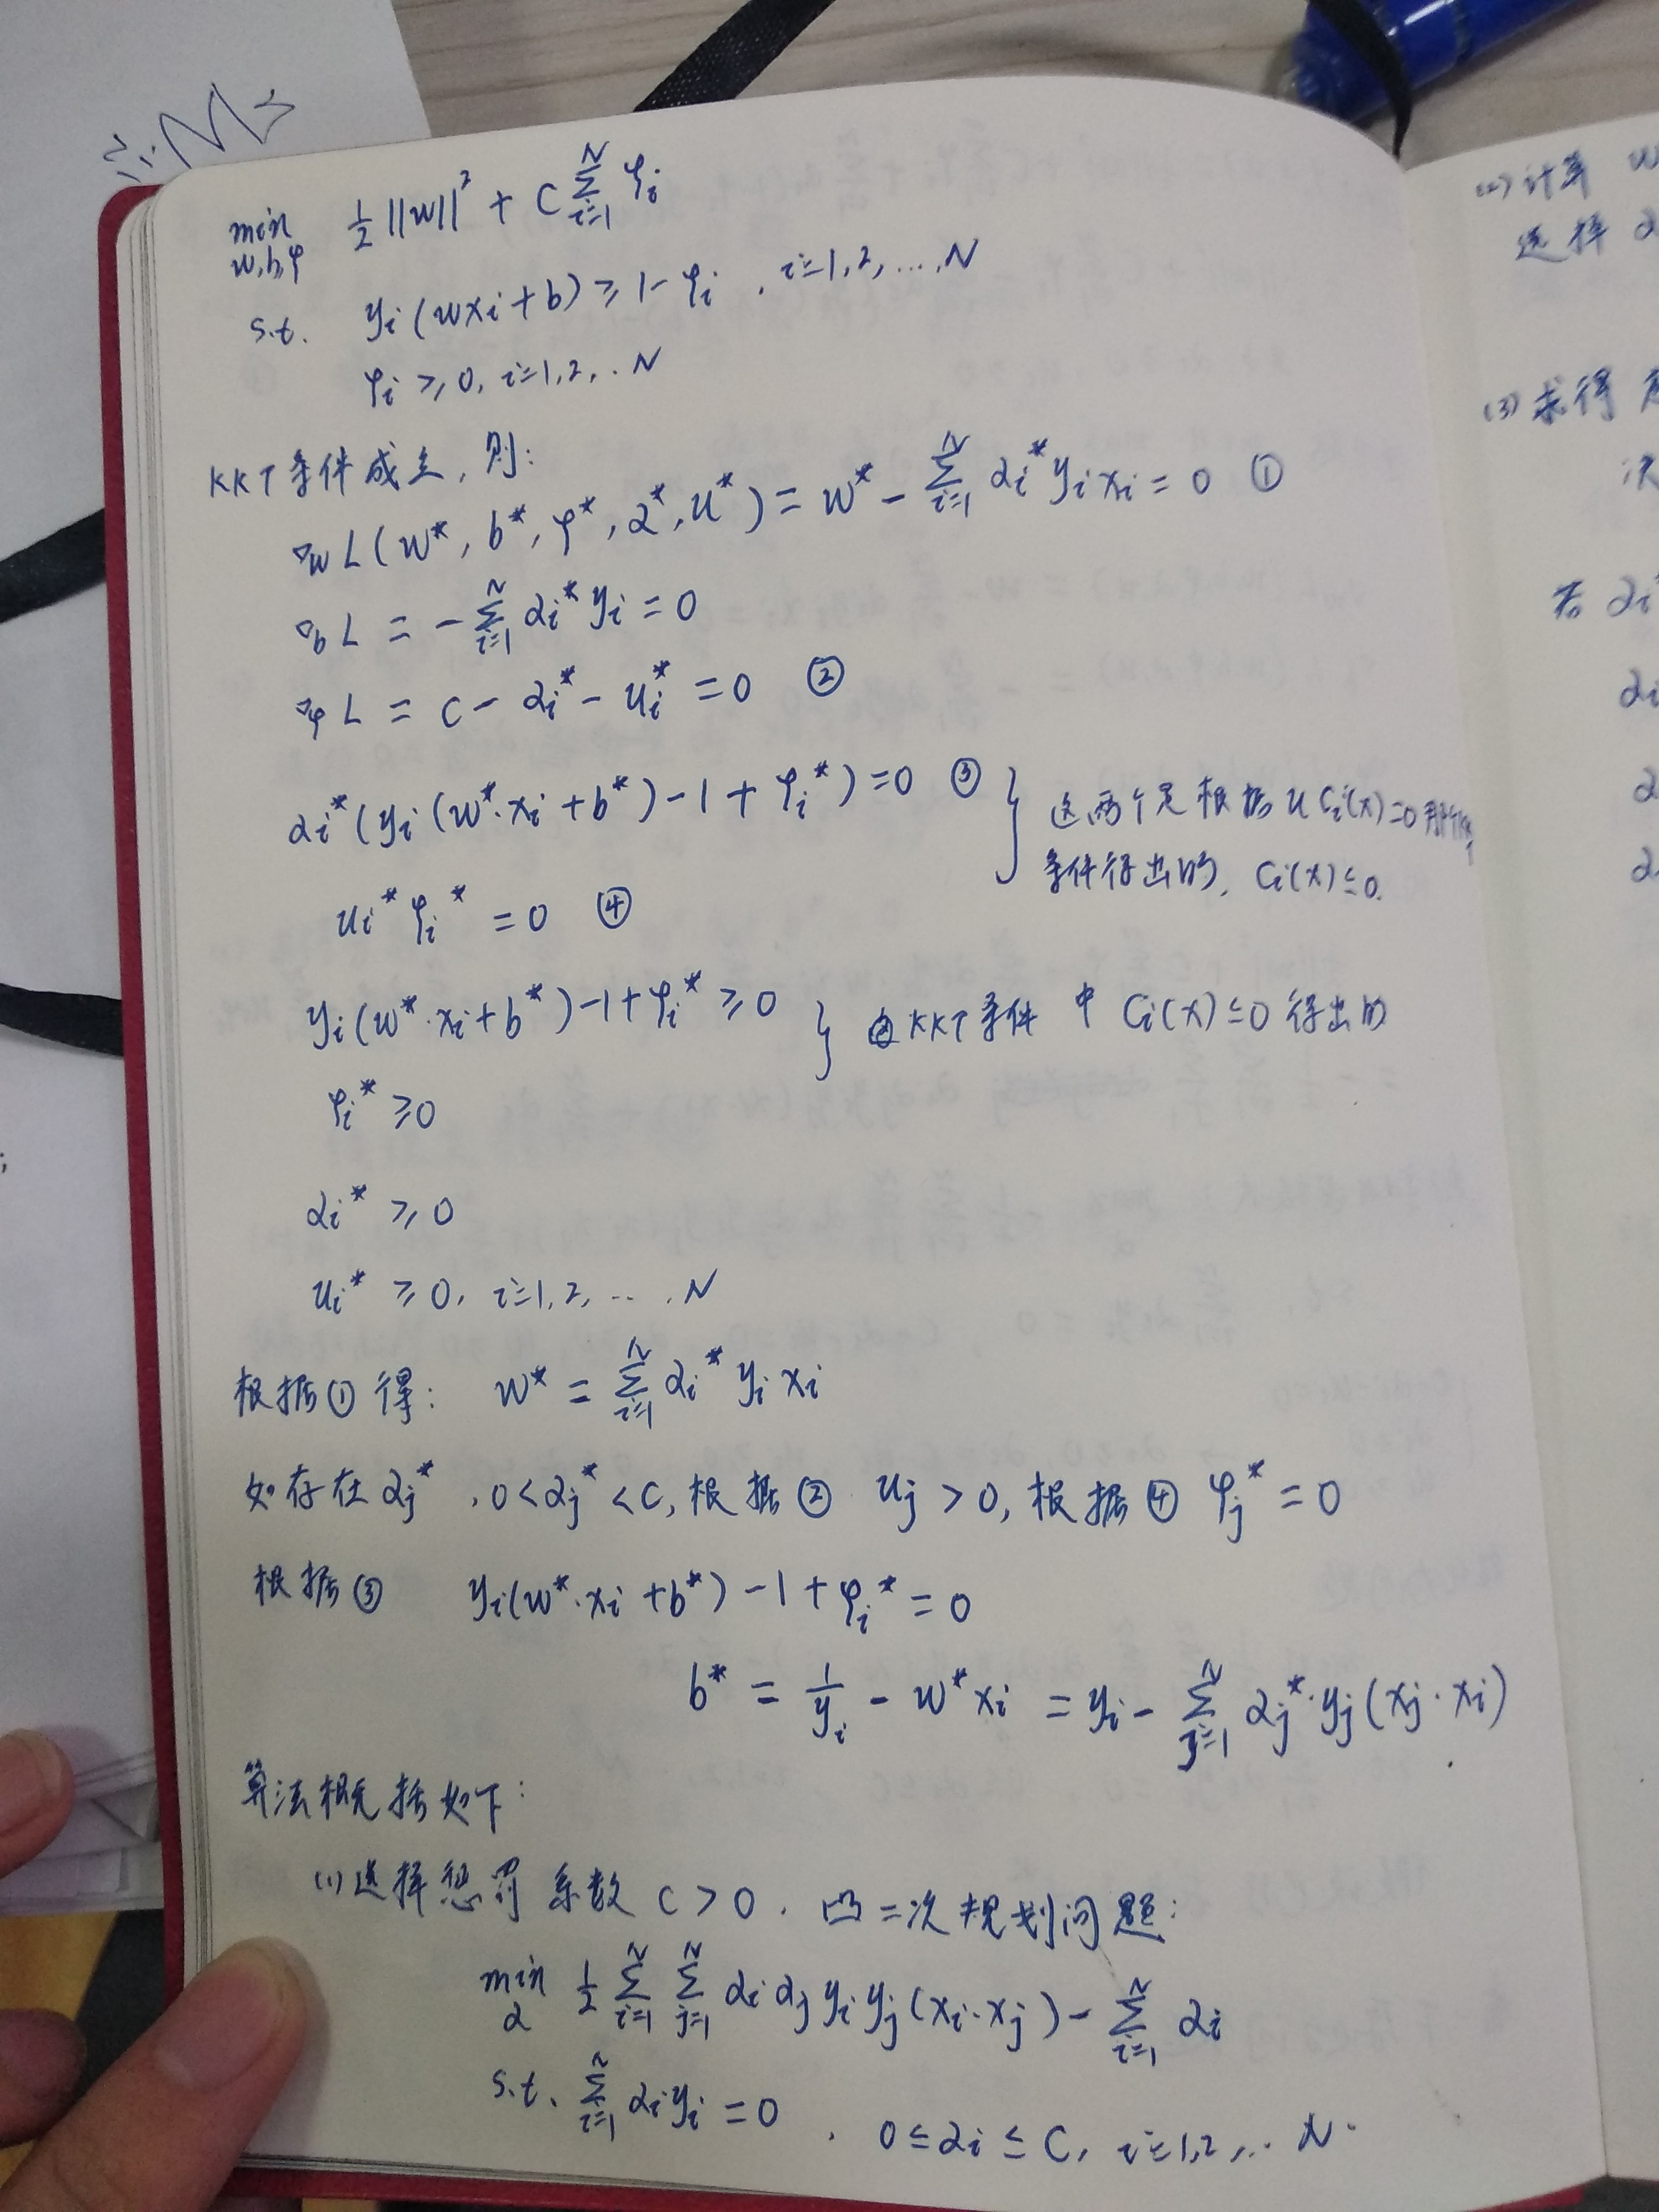 min ½||w||² + C Σ_{i=1}^{N} φi
w,b,φ
s.t. yi(wxi+b) ≥ 1-φi , i=1,2,...,N
φi ≥ 0, i=1,2,..N
KKT条件成立,则:
∇w L(w*, b*, φ*, α*, u*) = w* - Σ_{i=1}^{N} αi* yi xi = 0 ①
∇b L = - Σ_{i=1}^{N} αi* yi = 0
∇φ L = C - αi* - ui* = 0 ②
αi*(yi(w*·xi+b*)-1+φi*)=0 ③
这两个是根据 u Ci(x)=0
条件得出的, Ci(x)≤0.
ui* φi* = 0 ④
yi(w*·xi+b*)-1+φi* ≥ 0 } 由KKT条件 中 Ci(x)≤0 得出的
φi* ≥0
αi* ≥ 0
ui* ≥ 0, i=1,2,...,N
根据①得: w* = Σ_{i=1}^{N} αi* yi xi
如存在αj* , 0<αj*<C, 根据② uj > 0, 根据④ φj* = 0
根据③ yi(w*·xi+b*)-1+φi* = 0
b* = 1/yi - w*xi = yi - Σ_{j=1}^{N} αj*·yj(xj·xi)
算法概括如下:
(1)选择惩罚系数 C>0 , 凸二次规划问题:
min ½ Σ_{i=1}^{N} Σ_{j=1}^{N} αi αj yi yj (xi·xj) - Σ_{i=1}^{N} αi
α
s.t. Σ_{i=1}^{N} αi yi = 0 , 0≤αi≤C, i=1,2,.. N.
(2)计算 w
选择 α
(3)求得
决
若 αi
αi
α
α